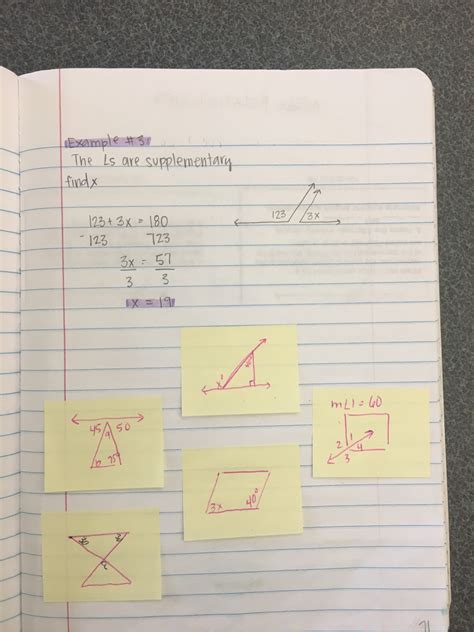 Example #3
The ∠s are supplementary
find x
123 + 3x = 180
-123 723
3x = 57
3 3
x = 19
123 3x
x°
45 50
m∠1 = 60
2 1
4
3
3x 40°
71